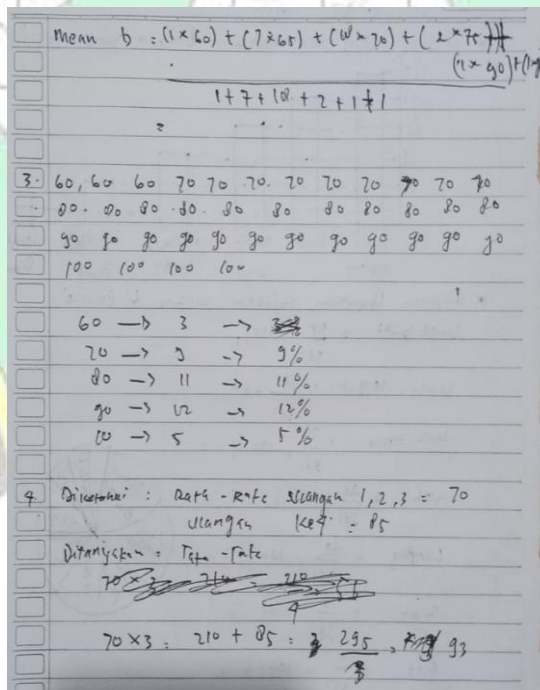 mean b : (1 x 60) + (7 x 65) + (10 x 70) + ( 2 x 75 )+
(1 x 90) + (1
1 + 7 + 10 + 2 + 1 + 1
=
3. 60, 60 60 70 70 70. 70 70 70 70 70 70
80. 80 80 .80. 80 80 80 80 80 80 80
90 90 90 90 90 90 90 90 90 90 90 90
100 100 100 100
60 —> 3 —>
70 —> 9 —> 9%
80 —> 11 —> 11%
90 —> 12 —> 12%
10 —> 5 —> 5%
4. Diketahui : Rata - Rata Ulangan 1, 2, 3 = 70
Ulangan ke4 = 85
Ditanyakan = Rata - rata
70 x 3 = 210 = 210
4
70 x 3 = 210 + 85 = 295 = 93
3